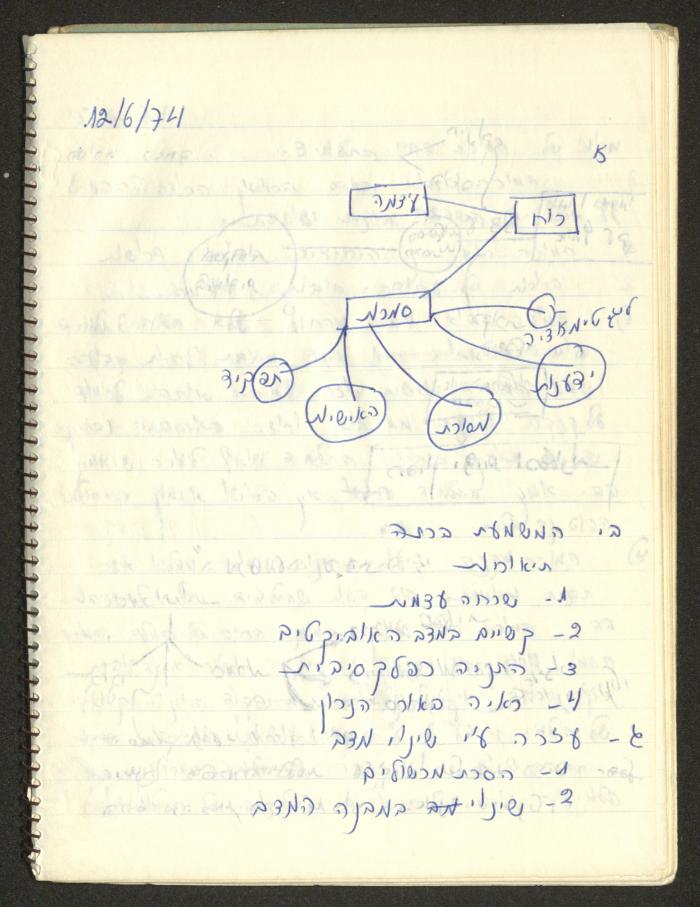 12/6/74
א
עצמה
כוח
סמכות
לגיטימאציה
תפקיד
האישיות
מסורת
ידענות
ב' המשמעת ברתה
תיאוריות
1- שררה עצמית
2- קשיים במצב האובייקטיבי
3- התניה רפלקסיבית
4- ראיה באורס הנכון
ג- עזרה ע"י שינוי מצב
1- הסרת מכשולים
2- שינוי במבנה המצב